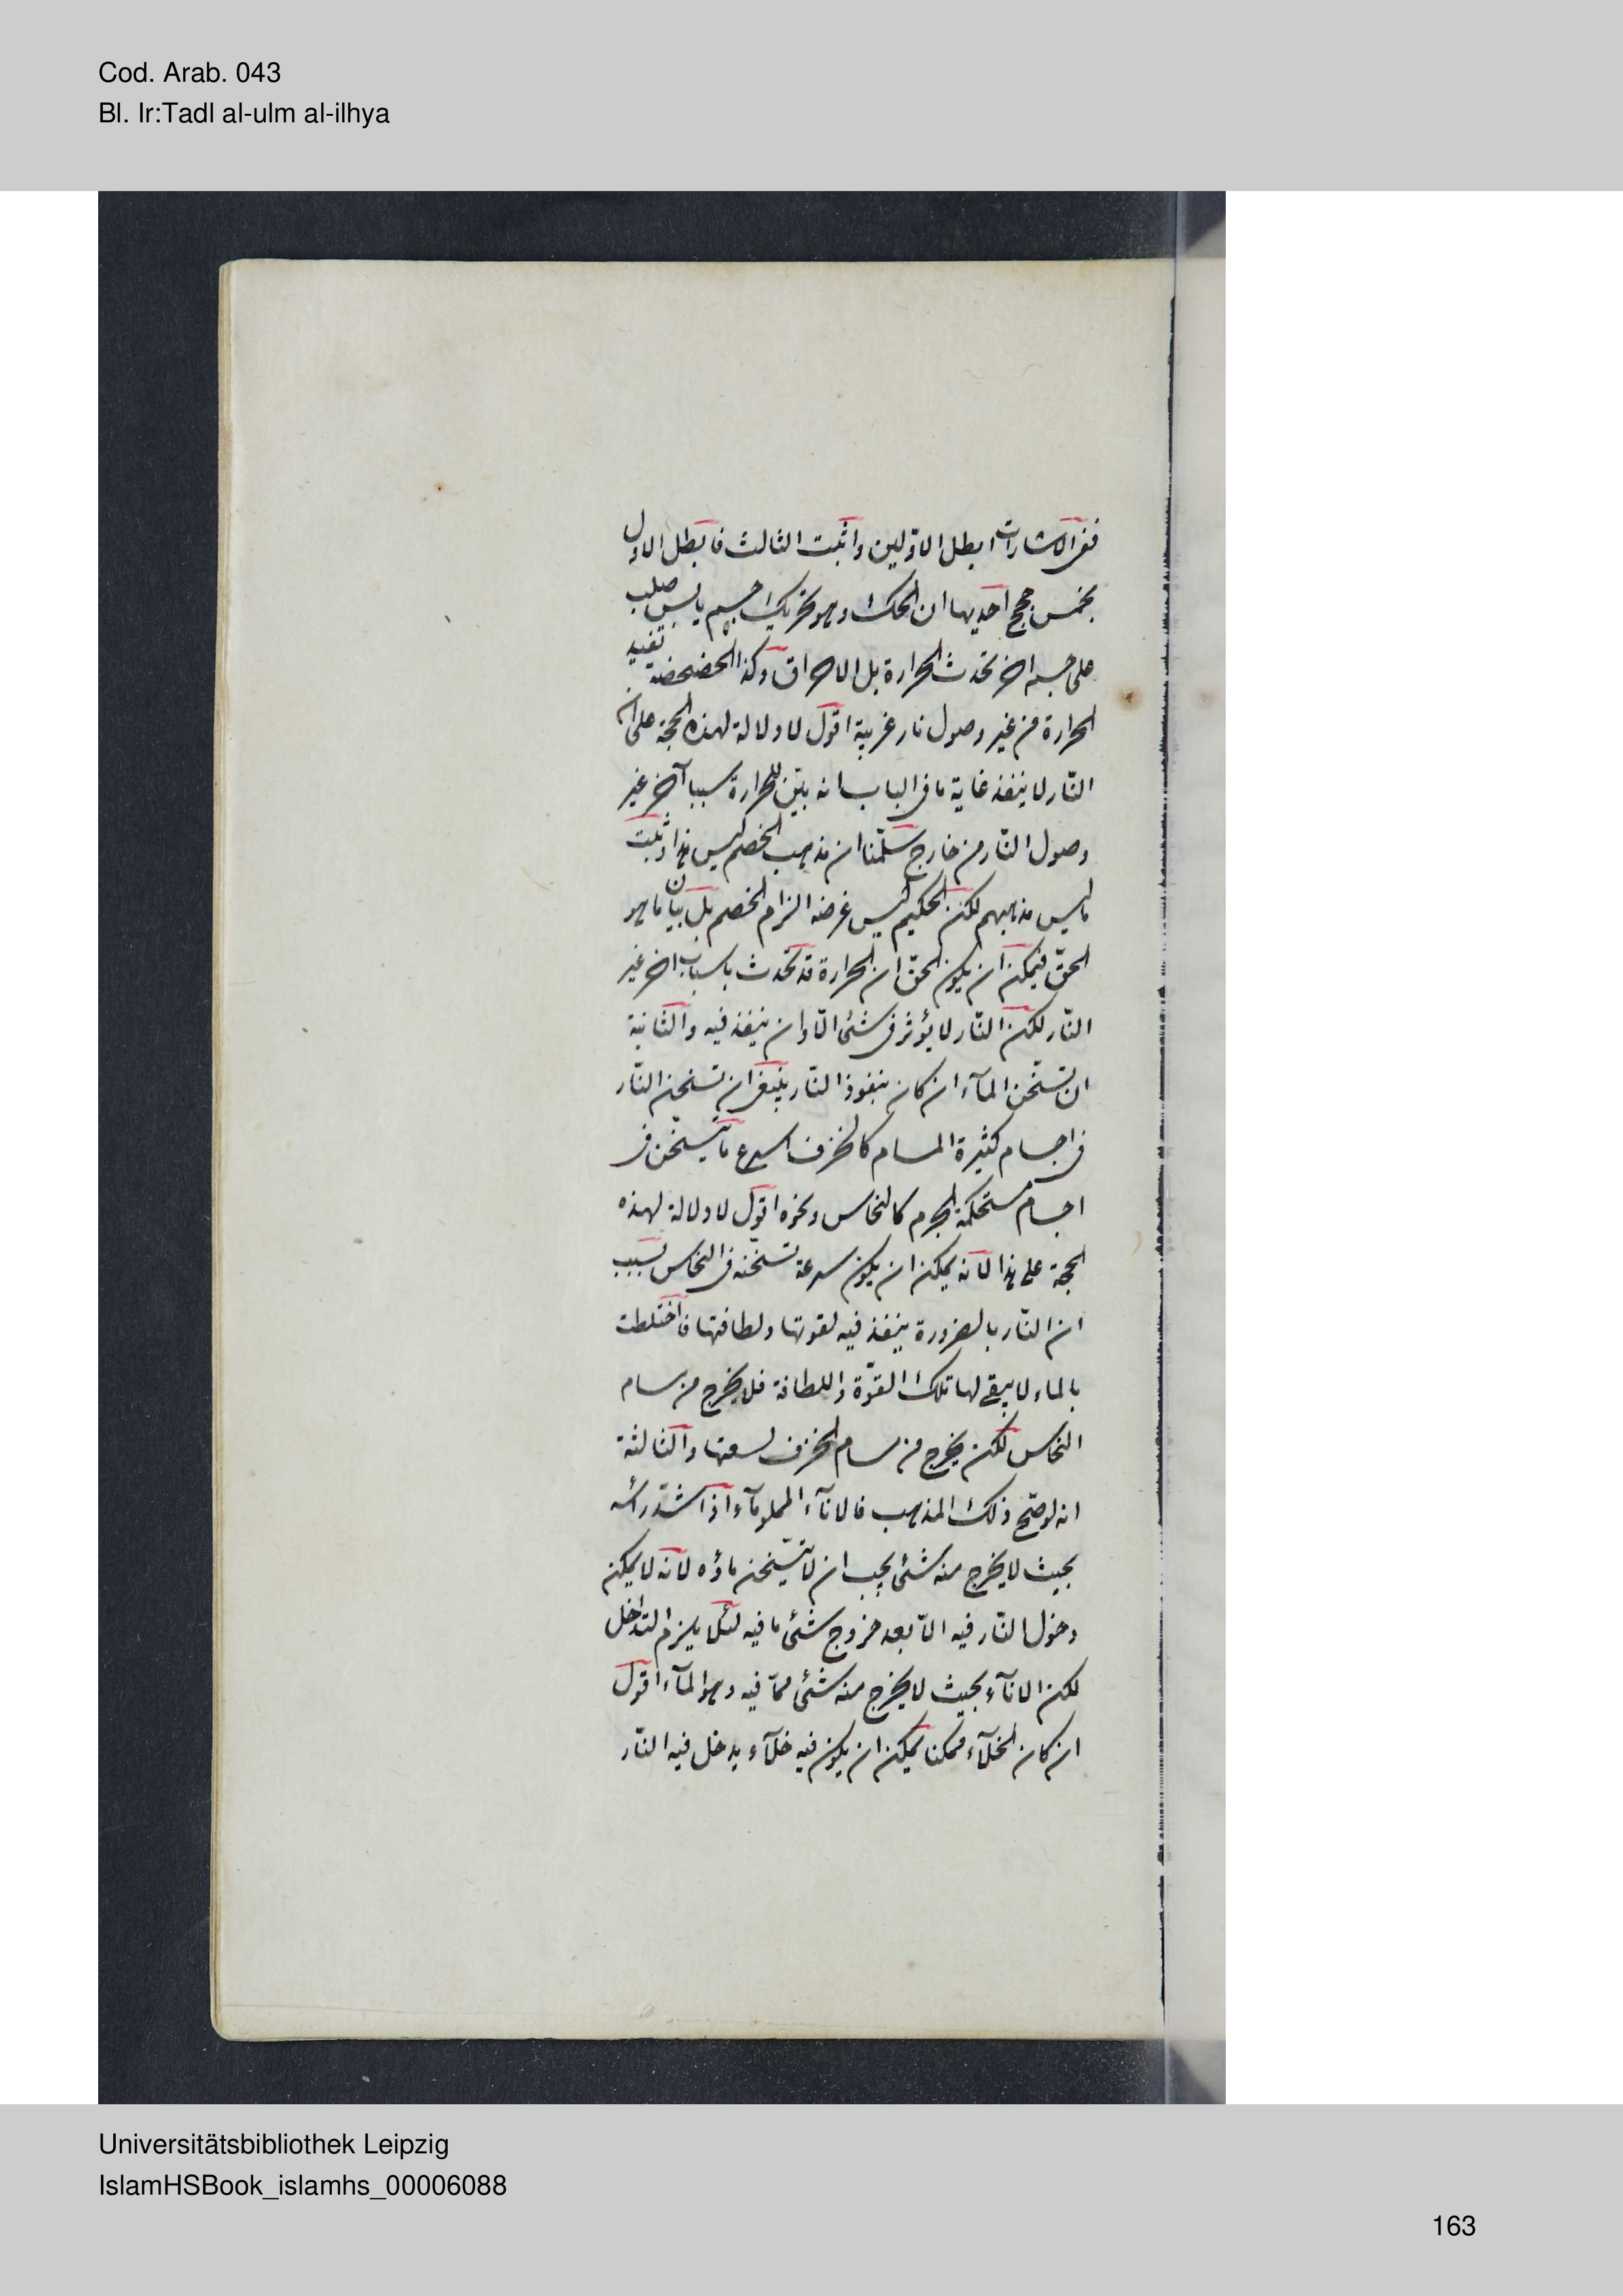 Cod. Arab. 043
Bl. Ir:Tadl al-ulm al-ilhya
ففى الاشارات ابطل الاوّلين واثبت الثالث فابطل الاول
بخمس حجج احديها ان الحك وهو تحريك جسم يابس صلب
على جسم اخر تحدث الحرارة بل الاحراق وكذا الخضخضة تفيد
الحرارة من غير وصول نار غريبة اقول لا دلالة لهذه الحجة على ان
النّار لا ينفذ غاية ما فى الباب انه بيّن للحرارة سببا آخر غير
وصول النّار من خارج سلّمنا ان مذهب الخصم ليس هذا وثبت
ما ليس مذهبهم لكن الحكيم ليس غرضه الزام الخصم بل بيان ما هو
الحقّ فيمكن ان يكون الحق ان الحرارة قد تحدث باسباب اخر غير
النّار لكن النّار لا يؤثر فى شئ الّا وان ينفذ فيه والثّانية
ان تسخّن المآء ان كان بنفوذ النّار ينبغى ان تسخن النّار
فى اجسام كثيرة المسام كالخزف اسرع ما يتسخّن فى
اجسام مستحكمة الجرم كالنحاس ونحوه اقول لا دلالة لهذه
الحجة على هذا لانّه يمكن ان يكون سرعة تسخّنه فى النحاس بسبب
ان النّار بالضرورة ينفذ فيه لقوتها ولطافتها فاختلطت
بالماء لا يبقى لها تلك القوّة واللطافة فلا يخرج من مسام
النحاس لكن يخرج من مسام الخزف لسعتها والثالثة
انه لو صحّ ذلك المذهب فالانآء المملو مآء اذا اشتد رأسه
بحيث لا يخرج منه شئ يجب ان لا يتسّخن ماؤه لانّه لا يمكن
دخول النّار فيه الّا بعد خروج شئ ما فيه لئلّا يلزم التداخل
لكن الانآء بحيث لا يخرج منه شئ ممّا فيه وهو المآء اقول
ان كان الخلآء ممكنا يمكن ان يكون فيه خلآء يدخل فيه النّار
Universitätsbibliothek Leipzig
IslamHSBook_islamhs_00006088
163